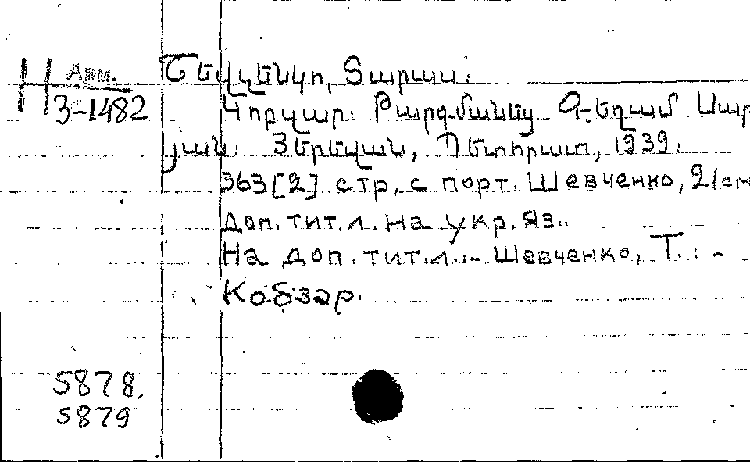 Н Арм.
3-1482
Շեվչենկո, Տարաս.
Կոբզար. Թարգմանեց Գեղամ Սար
յան. Յերեվան, Պետհրատ, 1939.
363 [2] стр. с порт. Шевченко, 21 см
Доп. тит. л. на укр. яз.
На доп. тит. л.:- Шевченко, Т. : -
Кобзар.
5878,
5879